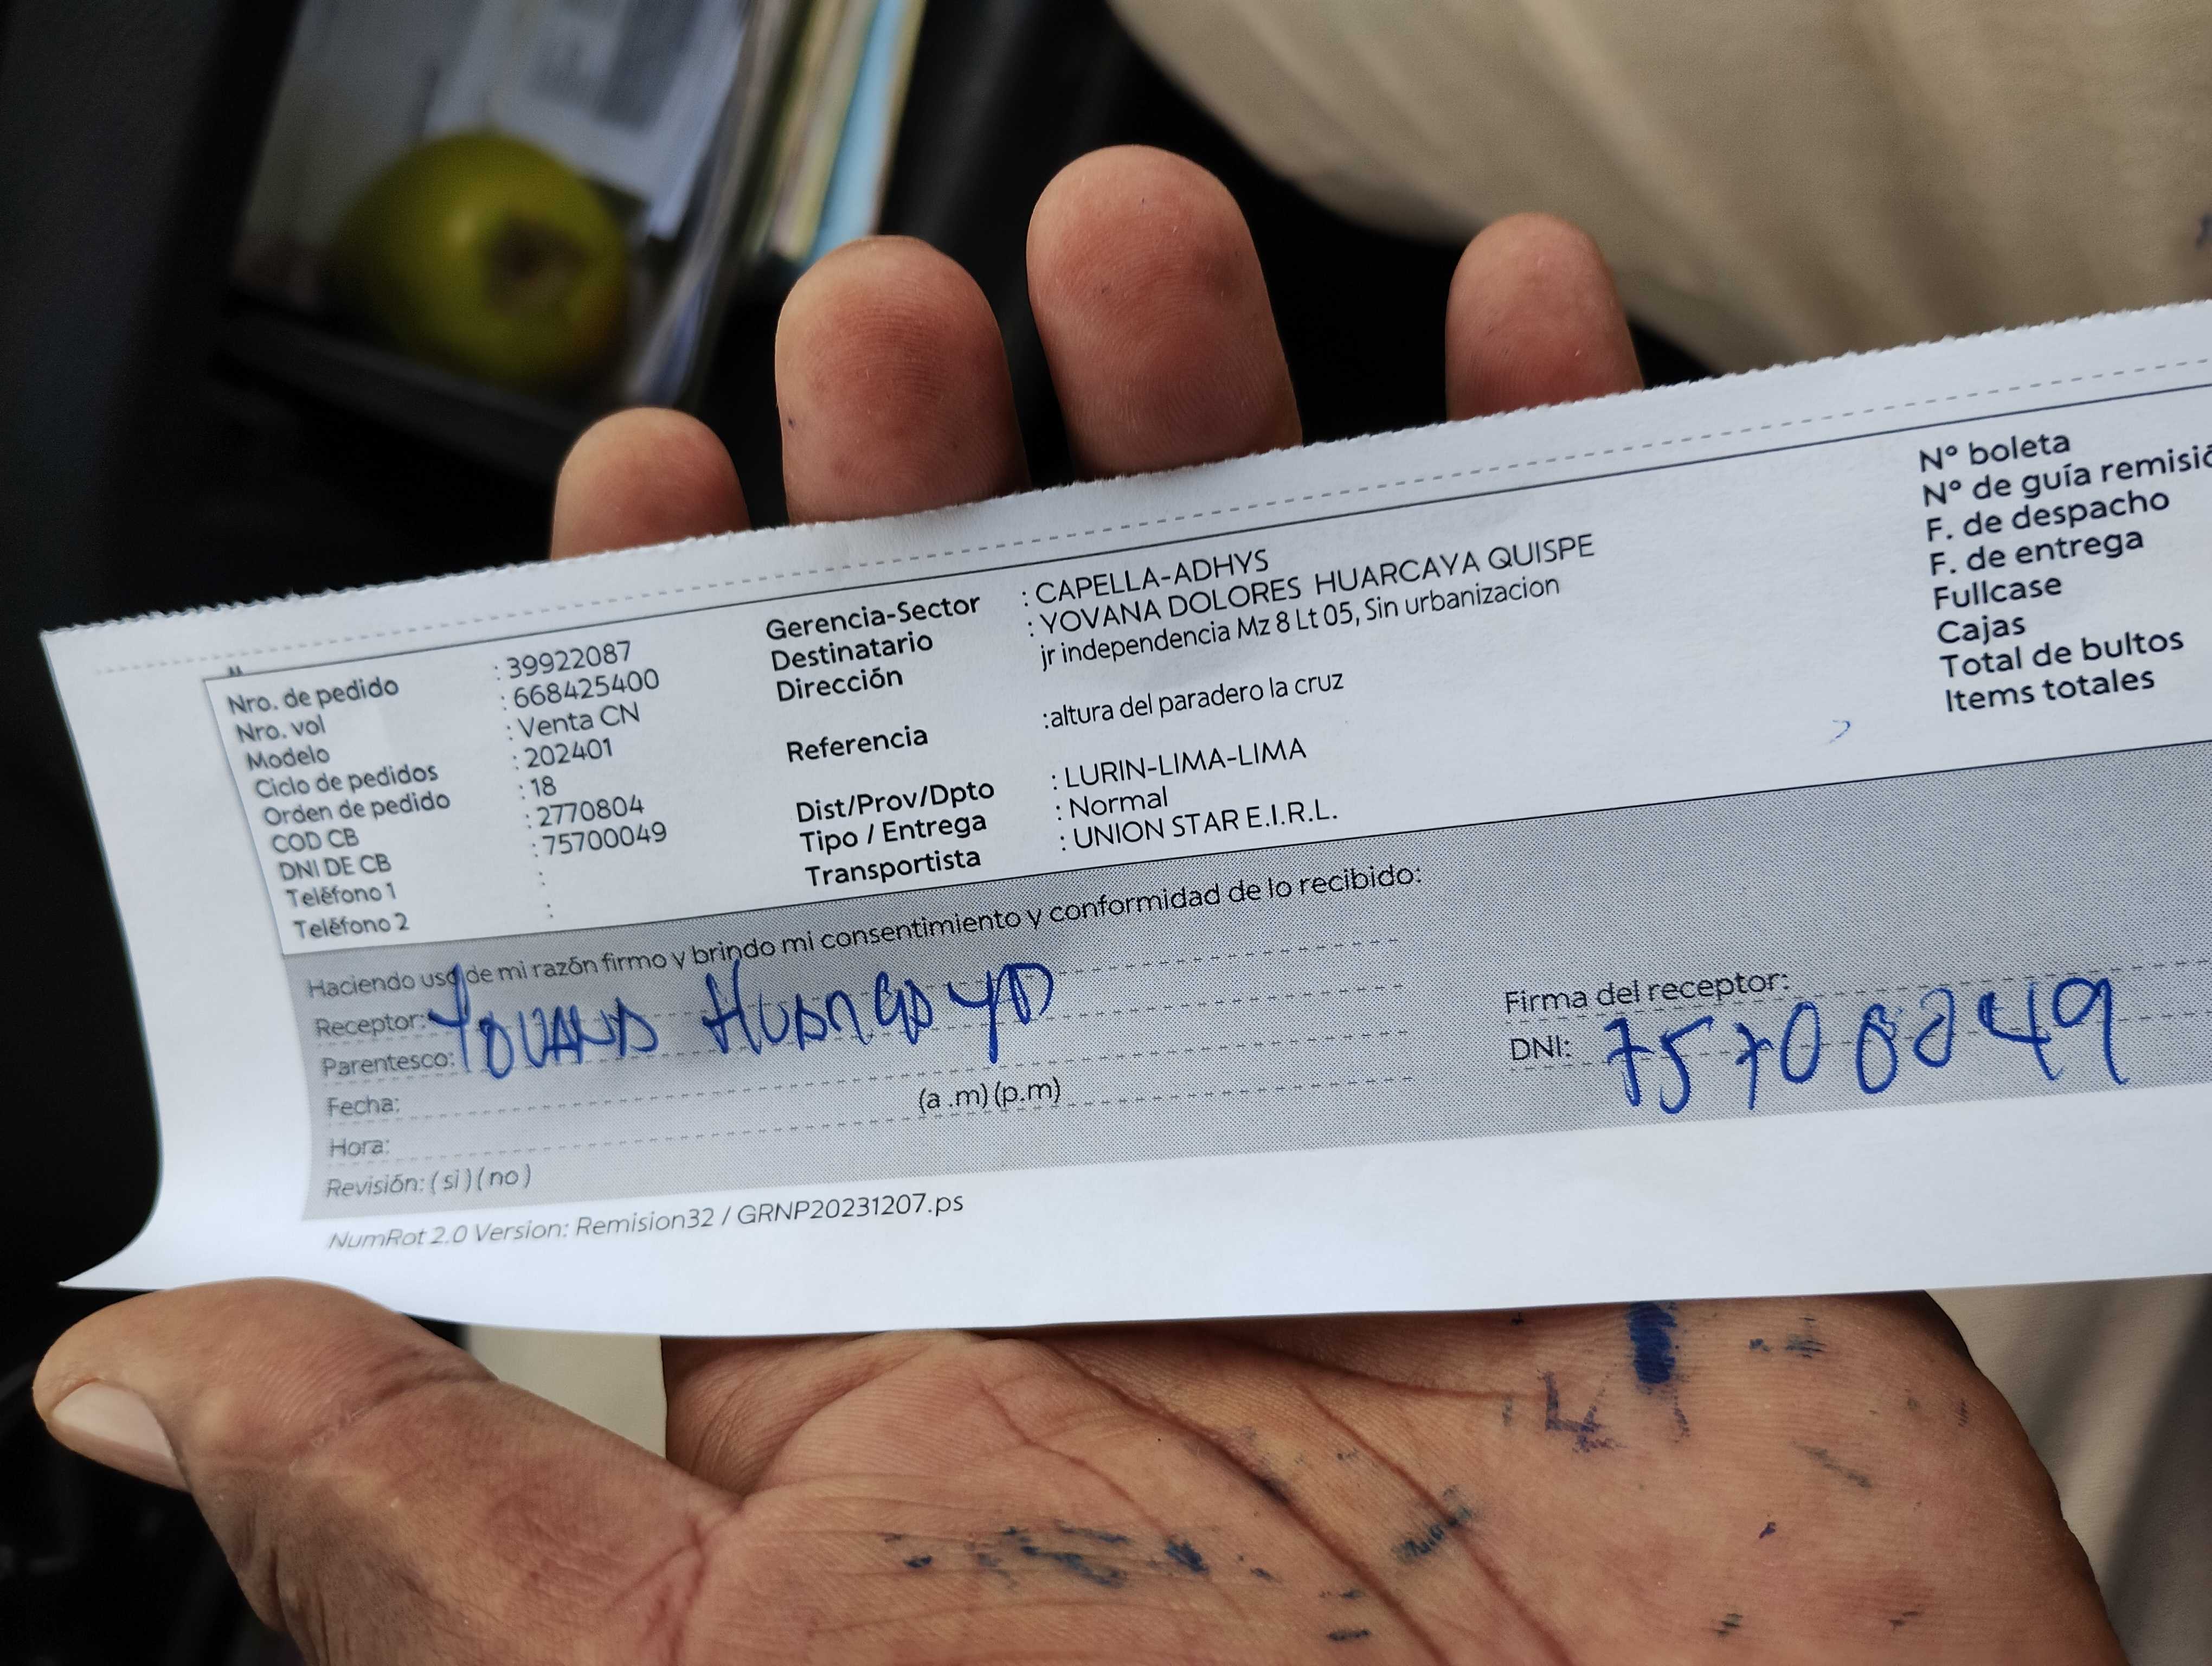 Nro. de pedido : 39922087
Nro. vol : 668425400
Modelo : Venta CN
Ciclo de pedidos : 202401
Orden de pedido : 18
COD CB : 2770804
DNI DE CB : 75700049
Teléfono 1 :
Teléfono 2 :
Gerencia-Sector : CAPELLA-ADHYS
Destinatario : YOVANA DOLORES HUARCAYA QUISPE
Dirección jr independencia Mz 8 Lt 05, Sin urbanizacion
Referencia :altura del paradero la cruz
Dist/Prov/Dpto : LURIN-LIMA-LIMA
Tipo / Entrega : Normal
Transportista : UNION STAR E.I.R.L.
N° boleta
N° de guía remisió
F. de despacho
F. de entrega
Fullcase
Cajas
Total de bultos
Items totales
Haciendo uso de mi razón firmo y brindo mi consentimiento y conformidad de lo recibido:
Receptor: Yovana Huarcaya
Parentesco:
Fecha:
Hora: (a .m) (p.m)
Revisión: ( si ) ( no )
Firma del receptor:
DNI: 75700049
NumRot 2.0 Version: Remision32 / GRNP20231207.ps